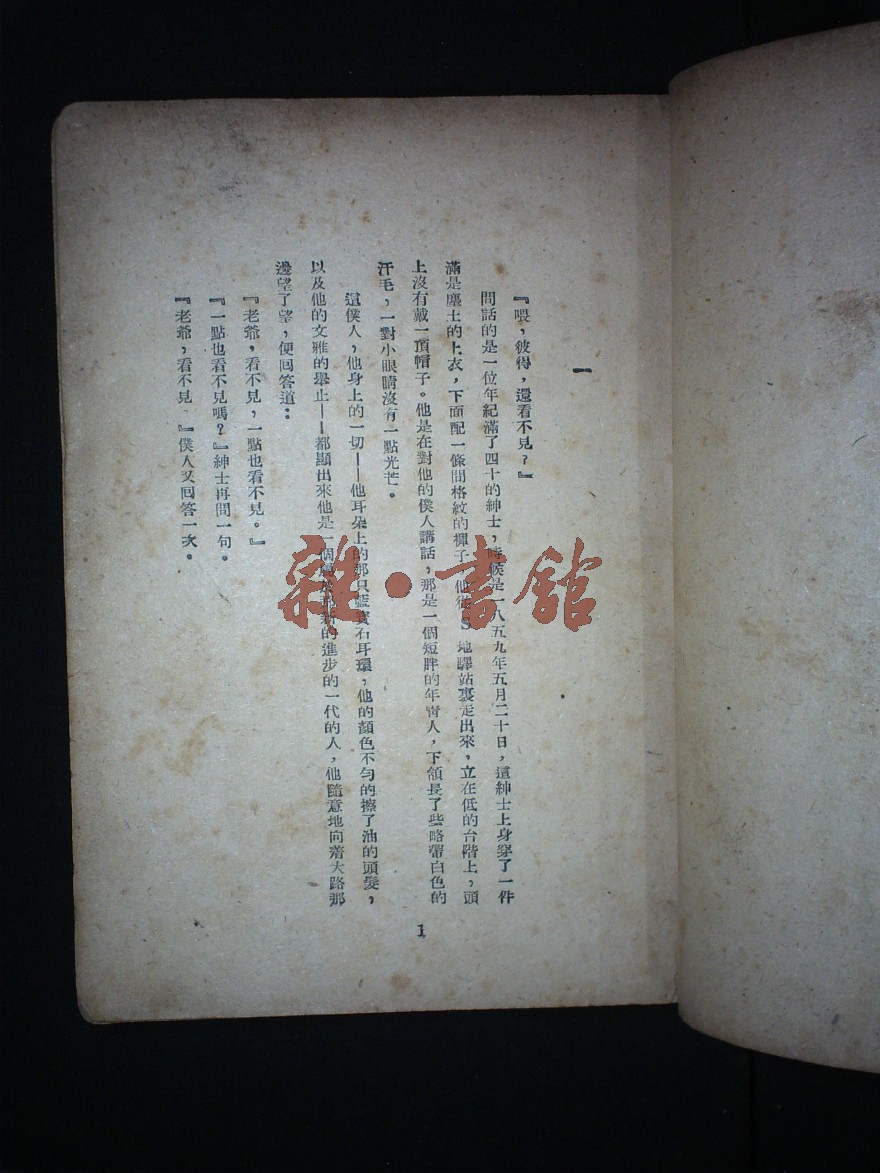 一
『喂，彼得，還看不見？』
問話的是一位年紀滿了四十的紳士，時候是一八五九年五月二十日，這紳士上身穿了一件
滿是塵土的上衣，下面配一條間格紋的褲子，他從S地驛站裏走出來，立在低的台階上，頭
上沒有戴一頂帽子。他是在對他的僕人講話，那是一個短胖的年靑人，下頷長了些略帶白色的
汗毛，一對小眼睛沒有一點光芒。
這僕人，他身上的一切——他耳朵上的那只藍寶石耳環，他的顏色不勻的擦了油的頭髮，
以及他的文雅的舉止——都顯出來他是一個屬於新的進步的一代的人，他隨意地向着大路那
邊望了望，便回答道：
『老爺，看不見，一點也看不見。』
『一點也看不見嗎？』紳士再問一句。
『老爺，看不見。』僕人又回答一次。
1
雜·書館